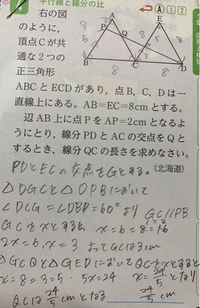 平行線と線分の比
右の図
のように,
頂点Cが共
通な2つの
正三角形
ABCとECDがあり,点B,C,Dは一
直線上にある。AB=EC=8cmとする。
辺AB上に点PをAP=2cmとなるよ
うにとり,線分PDとACの交点をQと
するとき,線分QCの長さを求めなさい。
(北海道)
A
E
P
Q
B
C
D
8
8
PDとECの交点をGとする。
△DGCと△DPBにおいて
∠DCG=∠DBP=60°より GC∥PB
GCをxとすると x:6=8:16
2x=6, x=3 よってGCは3cm
△GCQと△GEDにおいてQCをxとすると
x:8=3:5 5x=24 x=24/5 cmとなり
QCは 24/5 cmとなる